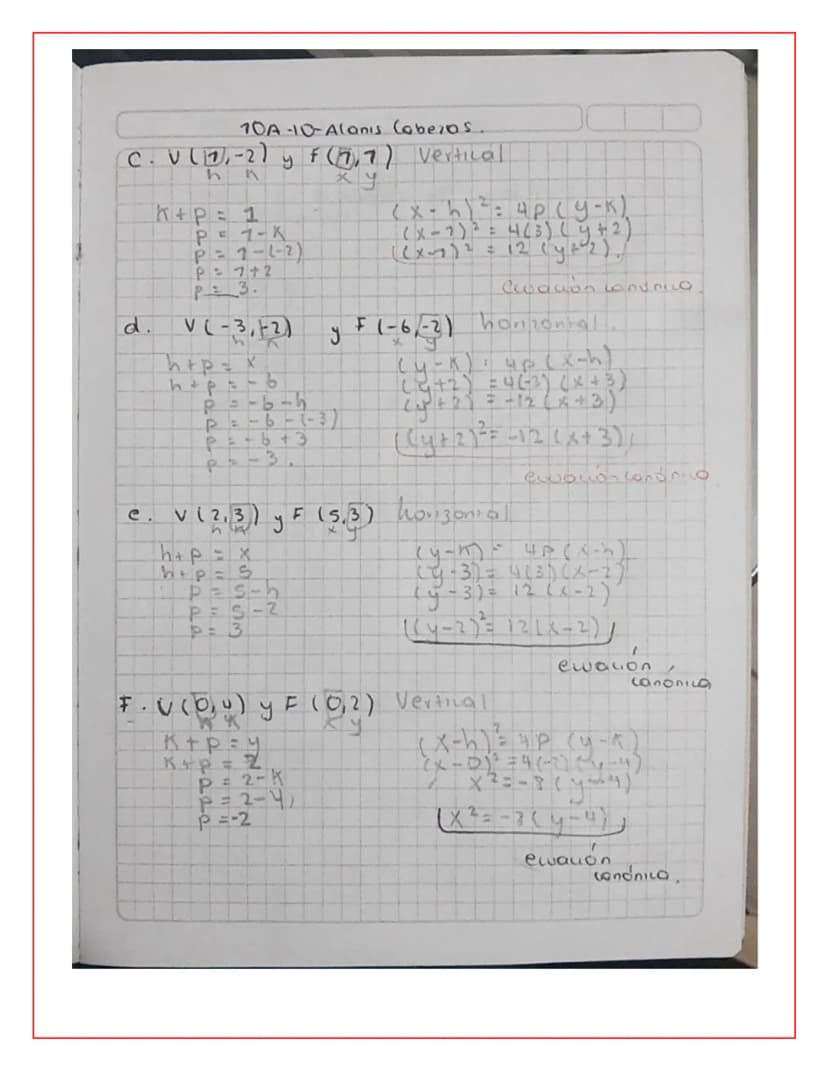 10A-10-Alanis Cabezas.
c. V(1,-2) y F(1,1) Vertical
h k x y
K+p = 1 (x-h)²= 4p(y-K)
p = 1-K (x-1)² = 4(3)(y+2)
p = 1-(-2) ((x-1)² = 12(y+2)
p = 1+2
p = 3. ecuación canónica
d. V(-3,-2) y F(-6,-2) horizontal
h k x y
h+p = x (y-K) = 4p(x-h)
h+p = -6 (y+2) = 4(-3)(x+3)
p = -6-h (y+2) = -12(x+3)
p = -6-(-3)
p = -6+3 (y+2)²= -12(x+3)
p = -3. ecuación canónica
e. V(2,3) y F(5,3) horizontal
h k x y
h+p = x (y-K) = 4p(x-h)
h+p = 5 (y-3) = 4(3)(x-2)
p = 5-h (y-3) = 12(x-2)
p = 5-2
p = 3 (y-2)²= 12(x-2)
ecuación
canónica
F. V(0,4) y F(0,2) Vertical
h K x y
K+p = y (x-h)²= 4p(y-K)
K+p = 2 (x-0)² = 4(-2)(y-4)
p = 2-K x²= -8(y-4)
p = 2-4
p = -2 x²= -8(y-4)
ecuación
canónica.